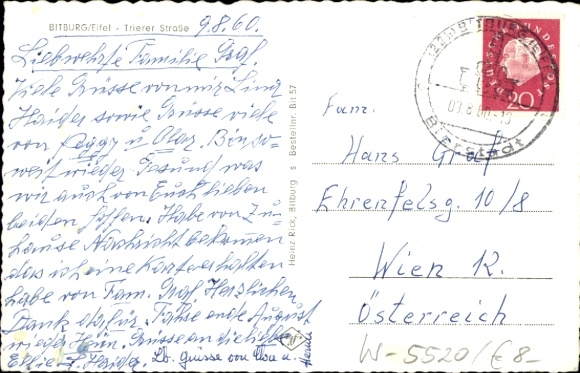 BITBURG/Eifel - Trierer Straße
9.8.60.
Liebwehrte Familie Graf.
Viele Grüsse von mir Lina
Haider sowie Grüsse viele
von Peggy u Alex. Bin so-
weit wieder Gesund was
wir auch von Euch lieben
beiden hoffen. Habe von Zu-
hause Nachricht bekommen
das ich eine Karte erhalten
habe von Fam. Graf. Herzlichen
Dank dafür. Fahre ende August
wieder Heim. Grüsse an die lieben
Haider. Lb. Grüsse von
Heinz Rick, Bitburg s Bestellnr. Bit 57
DEUTSCHE BUNDESPOST
20
Bierstadt
Fam.
Hans Graf
Ehrenfelsg. 10/8
Wien 12.
Österreich
W-5520/€8-